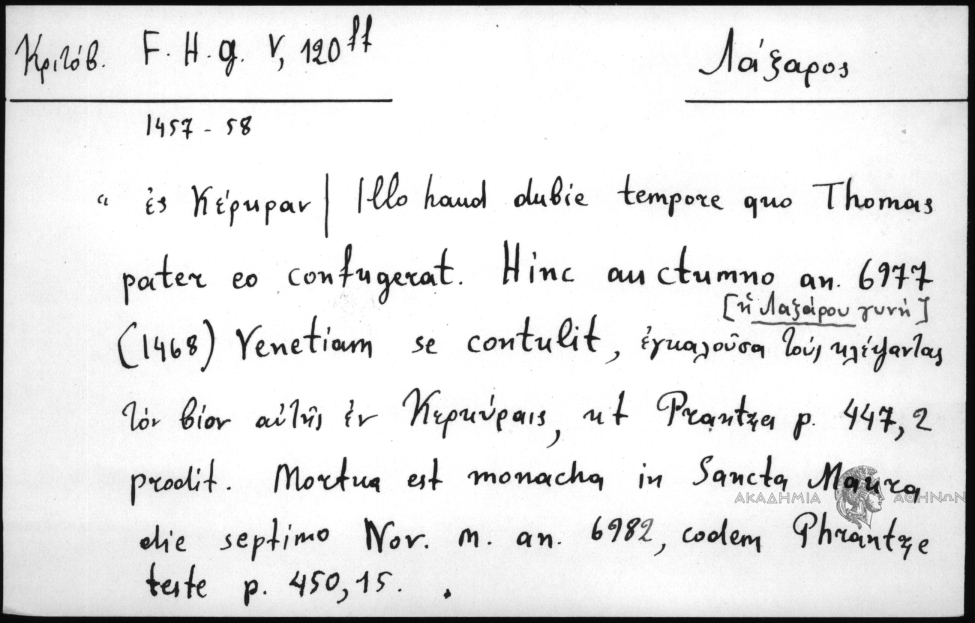 Κριτόβ. F. H. g. V, 120 ff
Λάζαρος
1457 - 58
“ ἐς Κέρκυραν | Illo haud dubie tempore quo Thomas
pater eo confugerat. Hinc auctumno an. 6977
[ἡ Λαζάρου γυνή]
(1468) Venetiam se contulit, ἐγκαλοῦσα τοὺς κλέψαντας
τὸν βίον αὐτῆς ἐν Κερκύραις, ut Phrantza p. 447, 2
prodit. Mortua est monacha in Sancta Maura
ΑΚΑΔΗΜΙΑ ΑΘΗΝΩΝ
die septimo Nov. m. an. 6982, eodem Phrantze
teste p. 450, 15.